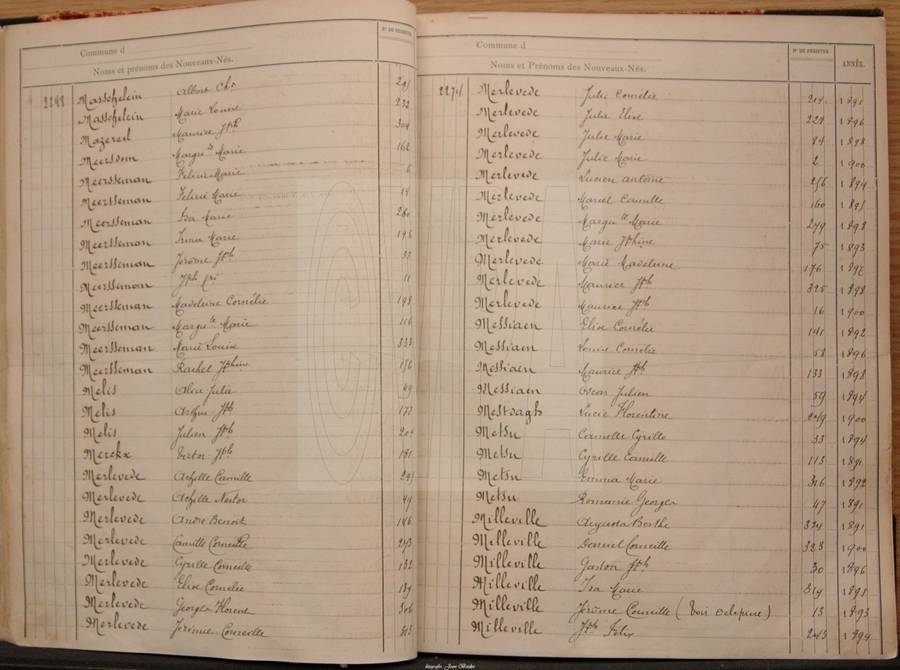 Commune d
Nº DE REGISTRE
Noms et prénoms des Nouveaux-Nés.
2248 Masschelein Albert Chs 291
Masschelein Marie Louise 232
Mazereil Maurice Jph 304
Meersdom Margu te Marie 162
Meersseman Felicie Marie 6
Meersseman Felicie Marie 14
Meersseman Isa Marie 260
Meersseman Irma Marie 196
Meersseman Jerome Jph 33
Meersseman Jph 11
Meersseman Madeleine Cornélie 198
Meersseman Margu te Marie 116
Meersseman Marie Louise 333
Meersseman Rachel Jphine 156
Melis Alice Julie 49
Melis Arthur Jph 177
Melis Julien Jph 201
Merckx Victor Jph 191
Merlevede Achille Camille 291
Merlevede Achille Nestor 49
Merlevede André Benoit 146
Merlevede Camille Corneille 273
Merlevede Cyrille Corneille 132
Merlevede Elise Cornelie 139
Merlevede Georges Florent 306
Merlevede Jérémie Corneille 303
Commune d
Nº DE REGISTRE
ANNÉE.
Noms et Prénoms des Nouveaux-Nés.
2274 Merlevede Julie Cornélie 1891
Merlevede Julie Elise 228 1896
Merlevede Julie Marie 84 1898
Merlevede Julie Marie 2 1900
Merlevede Lucien Antoine 256 1894
Merlevede Marcel Camille 160 1891
Merlevede Margu te Marie 279 1898
Merlevede Marie Jphine 75 1893
Merlevede Marie Madeleine 176
Merlevede Maurice Jph 325 1898
Merlevede Maurice Jph 16 1900
Messiaen Elise Cornélie 141 1892
Messiaen Louise Cornélie 58 1896
Messiaen Maurice Jph 133 1898
Messiaen Oscar Julien 59 1894
Mestdagh Lucie Florentine 249 1900
Metsu Camille Cyrille 33 1894
Metsu Cyrille Camille 113 1891
Metsu Emma Marie 316 1892
Metsu Romanie Georges 47 1891
Milleville Augusta Berthe 324 1891
Milleville Daniel Corneille 323 1900
Milleville Gaston Jph 30 1896
Milleville Isa Marie 319 1898
Milleville Jérôme Corneille (Voir 13 1893
Milleville Jph Félix 243 1894